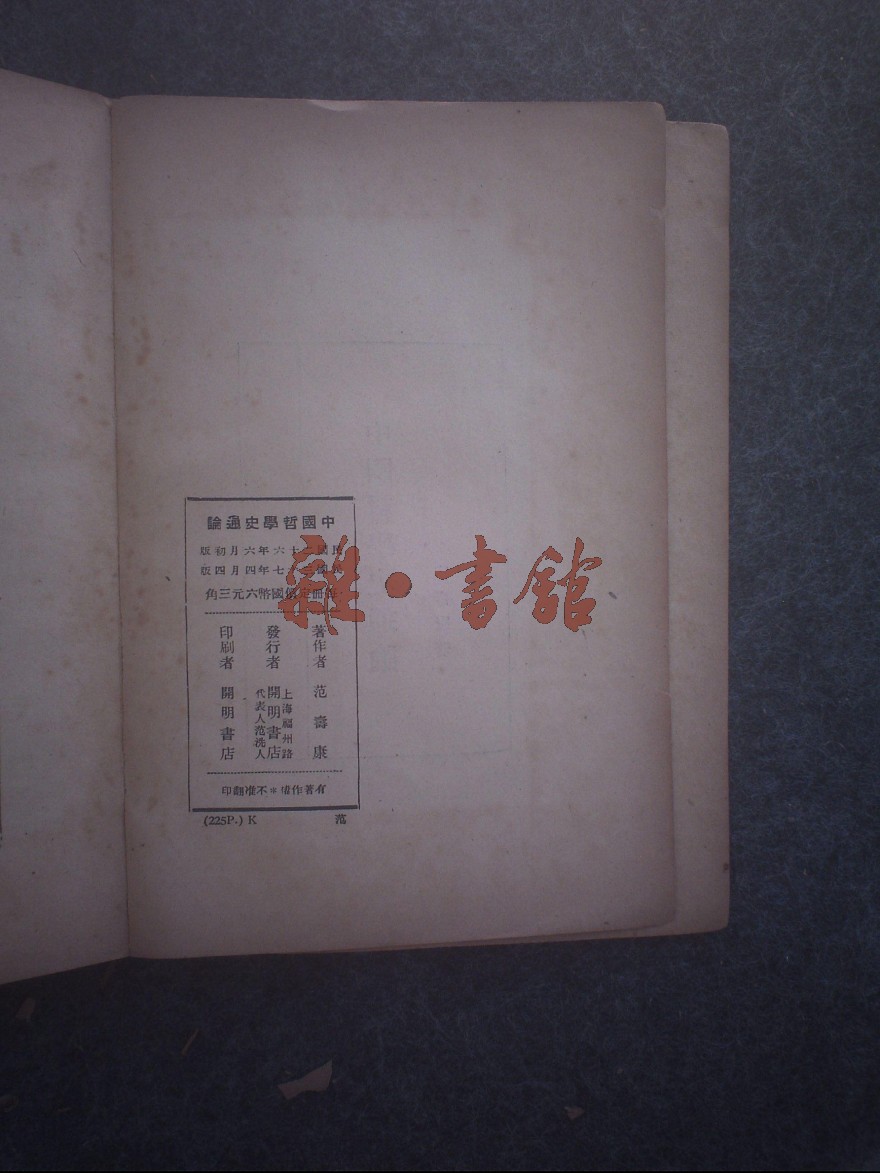 中國哲學史通論
民國二十六年六月初版
民國三十七年四月四版
每冊定價國幣六元三角
著作者 范壽康
發行者 上海福州路 開明書店 代表人范洗人
印刷者 開明書店
有著作權＊不准翻印
(225P.) K 范
雜·書館